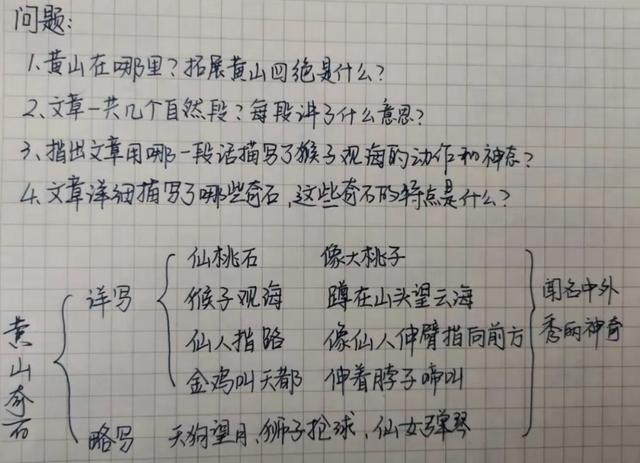 问题:
1.黄山在哪里?拓展黄山四绝是什么?
2、文章一共几个自然段?每段讲了什么意思?
3、指出文章用哪一段话描写了猴子观海的动作和神态?
4、文章详细描写了哪些奇石,这些奇石的特点是什么?
黄山奇石
详写
仙桃石 像大桃子
猴子观海 蹲在山头望云海
仙人指路 像仙人伸臂指向前方
金鸡叫天都 伸着脖子啼叫
闻名中外
秀丽神奇
略写 天狗望月、狮子抢球、仙女弹琴